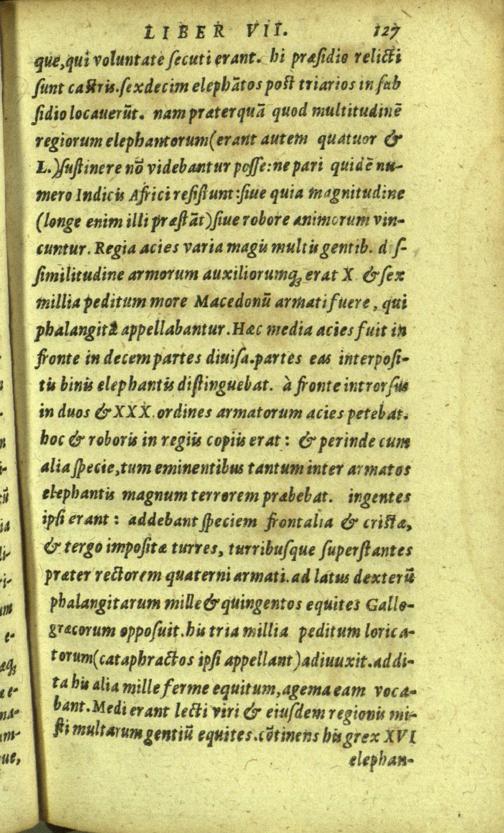 LIBER VII. 127
que, qui voluntate ſecuti erant. hi præſidio relicti
ſunt caſtris. ſexdecim elephātos poſt triarios in ſub
ſidio locauerūt. nam præterquā quod multitudinē
regiorum elephantorum (erant autem quatuor &
L.) ſuſtinere nō videbantur poſſe: ne pari quidē nu-
mero Indicis Africi reſiſtunt: ſiue quia magnitudine
(longe enim illi præſtāt) ſiue robore animorum vin-
cuntur. Regia acies varia magis multis gentib. diſ-
ſimilitudine armorum auxiliorumq; erat X & ſex
millia peditum more Macedonū armati fuere, qui
phalangitæ appellabantur. Hæc media acies fuit in
fronte in decem partes diuiſa. partes eas interpoſi-
tis binis elephantis diſtinguebat. à fronte introrſus
in duos & XXX. ordines armatorum acies petebat.
hoc & roboris in regiis copiis erat: & perinde cum
alia ſpecie, tum eminentibus tantum inter armatos
elephantis magnum terrorem præbebat. ingentes
ipſi erant: addebant ſpeciem frontalia & criſtæ,
& tergo impoſitæ turres, turribuſque ſuperſtantes
præter rectorem quaterni armati. ad latus dexterū
phalangitarum mille & quingentos equites Gallo-
græcorum oppoſuit. his tria millia peditum lorica-
torum (cataphractos ipſi appellant) adiuuxit. addi-
ta his alia mille ferme equitum, agema eam voca-
bant. Medi erant lecti viri & eiuſdem regionis mi-
ſti multarum gentiū equites. cōtinens his grex XVI
elephan-